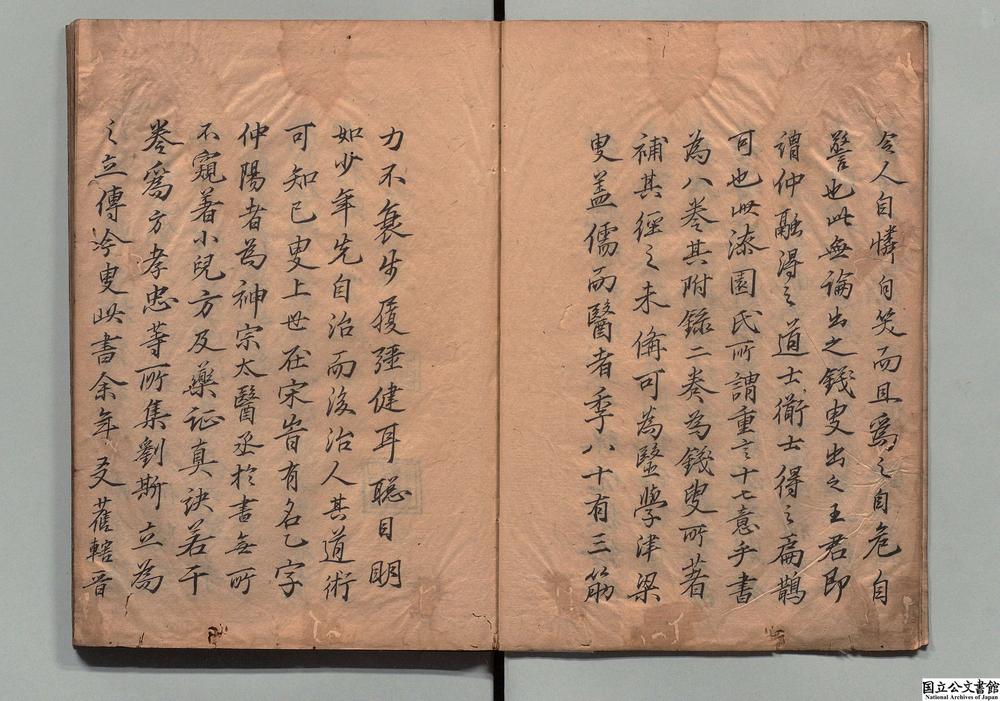 令人自憐自笑而且爲之自危自
警也此無論出之錢叟出之王君即
謂仲融得之道士術士得之扁鵲
可也此漆園氏所謂重言十七意乎書
為八卷其附錄二卷為錢叟所著
補其經之未備可為醫學津梁
叟盖儒而醫者季八十有三筋
力不衰步履彊健耳聡目明
如少年先自治而後治人其道術
可知已叟上世在宋旹有名乙字
仲陽者為神宗太醫丞於書無所
不窺著小兒方及藥証真訣若干
巻爲方孝忠等所集劉斯立為
之立傳今叟此書余年友舊轄晋
国立公文書館
National Archives of Japan